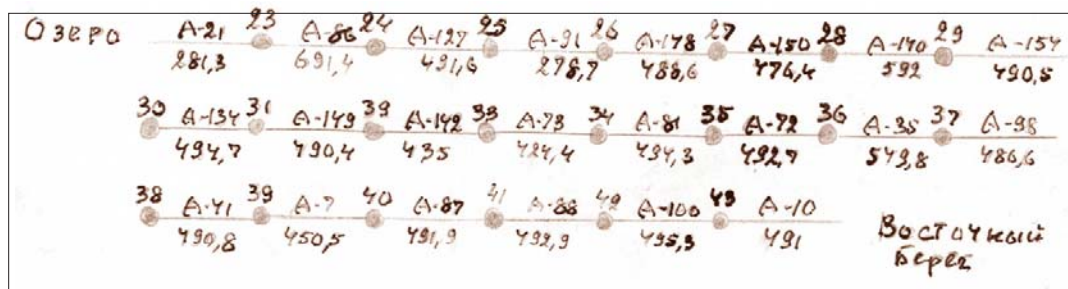 Озеро А-21 23 А-86 24 А-127 25 А-91 26 А-178 27 А-150 28 А-140 29 А-154
281,3 691,4 491,6 278,7 488,6 476,4 592 490,5
30 А-134 31 А-149 39 А-142 33 А-73 34 А-81 35 А-72 36 А-35 37 А-98
494,7 490,4 435 424,4 494,3 492,7 549,8 486,6
38 А-41 39 А-7 40 А-87 41 А-88 42 А-100 43 А-10
490,8 450,5 491,9 492,9 495,3 491
Восточный
берег